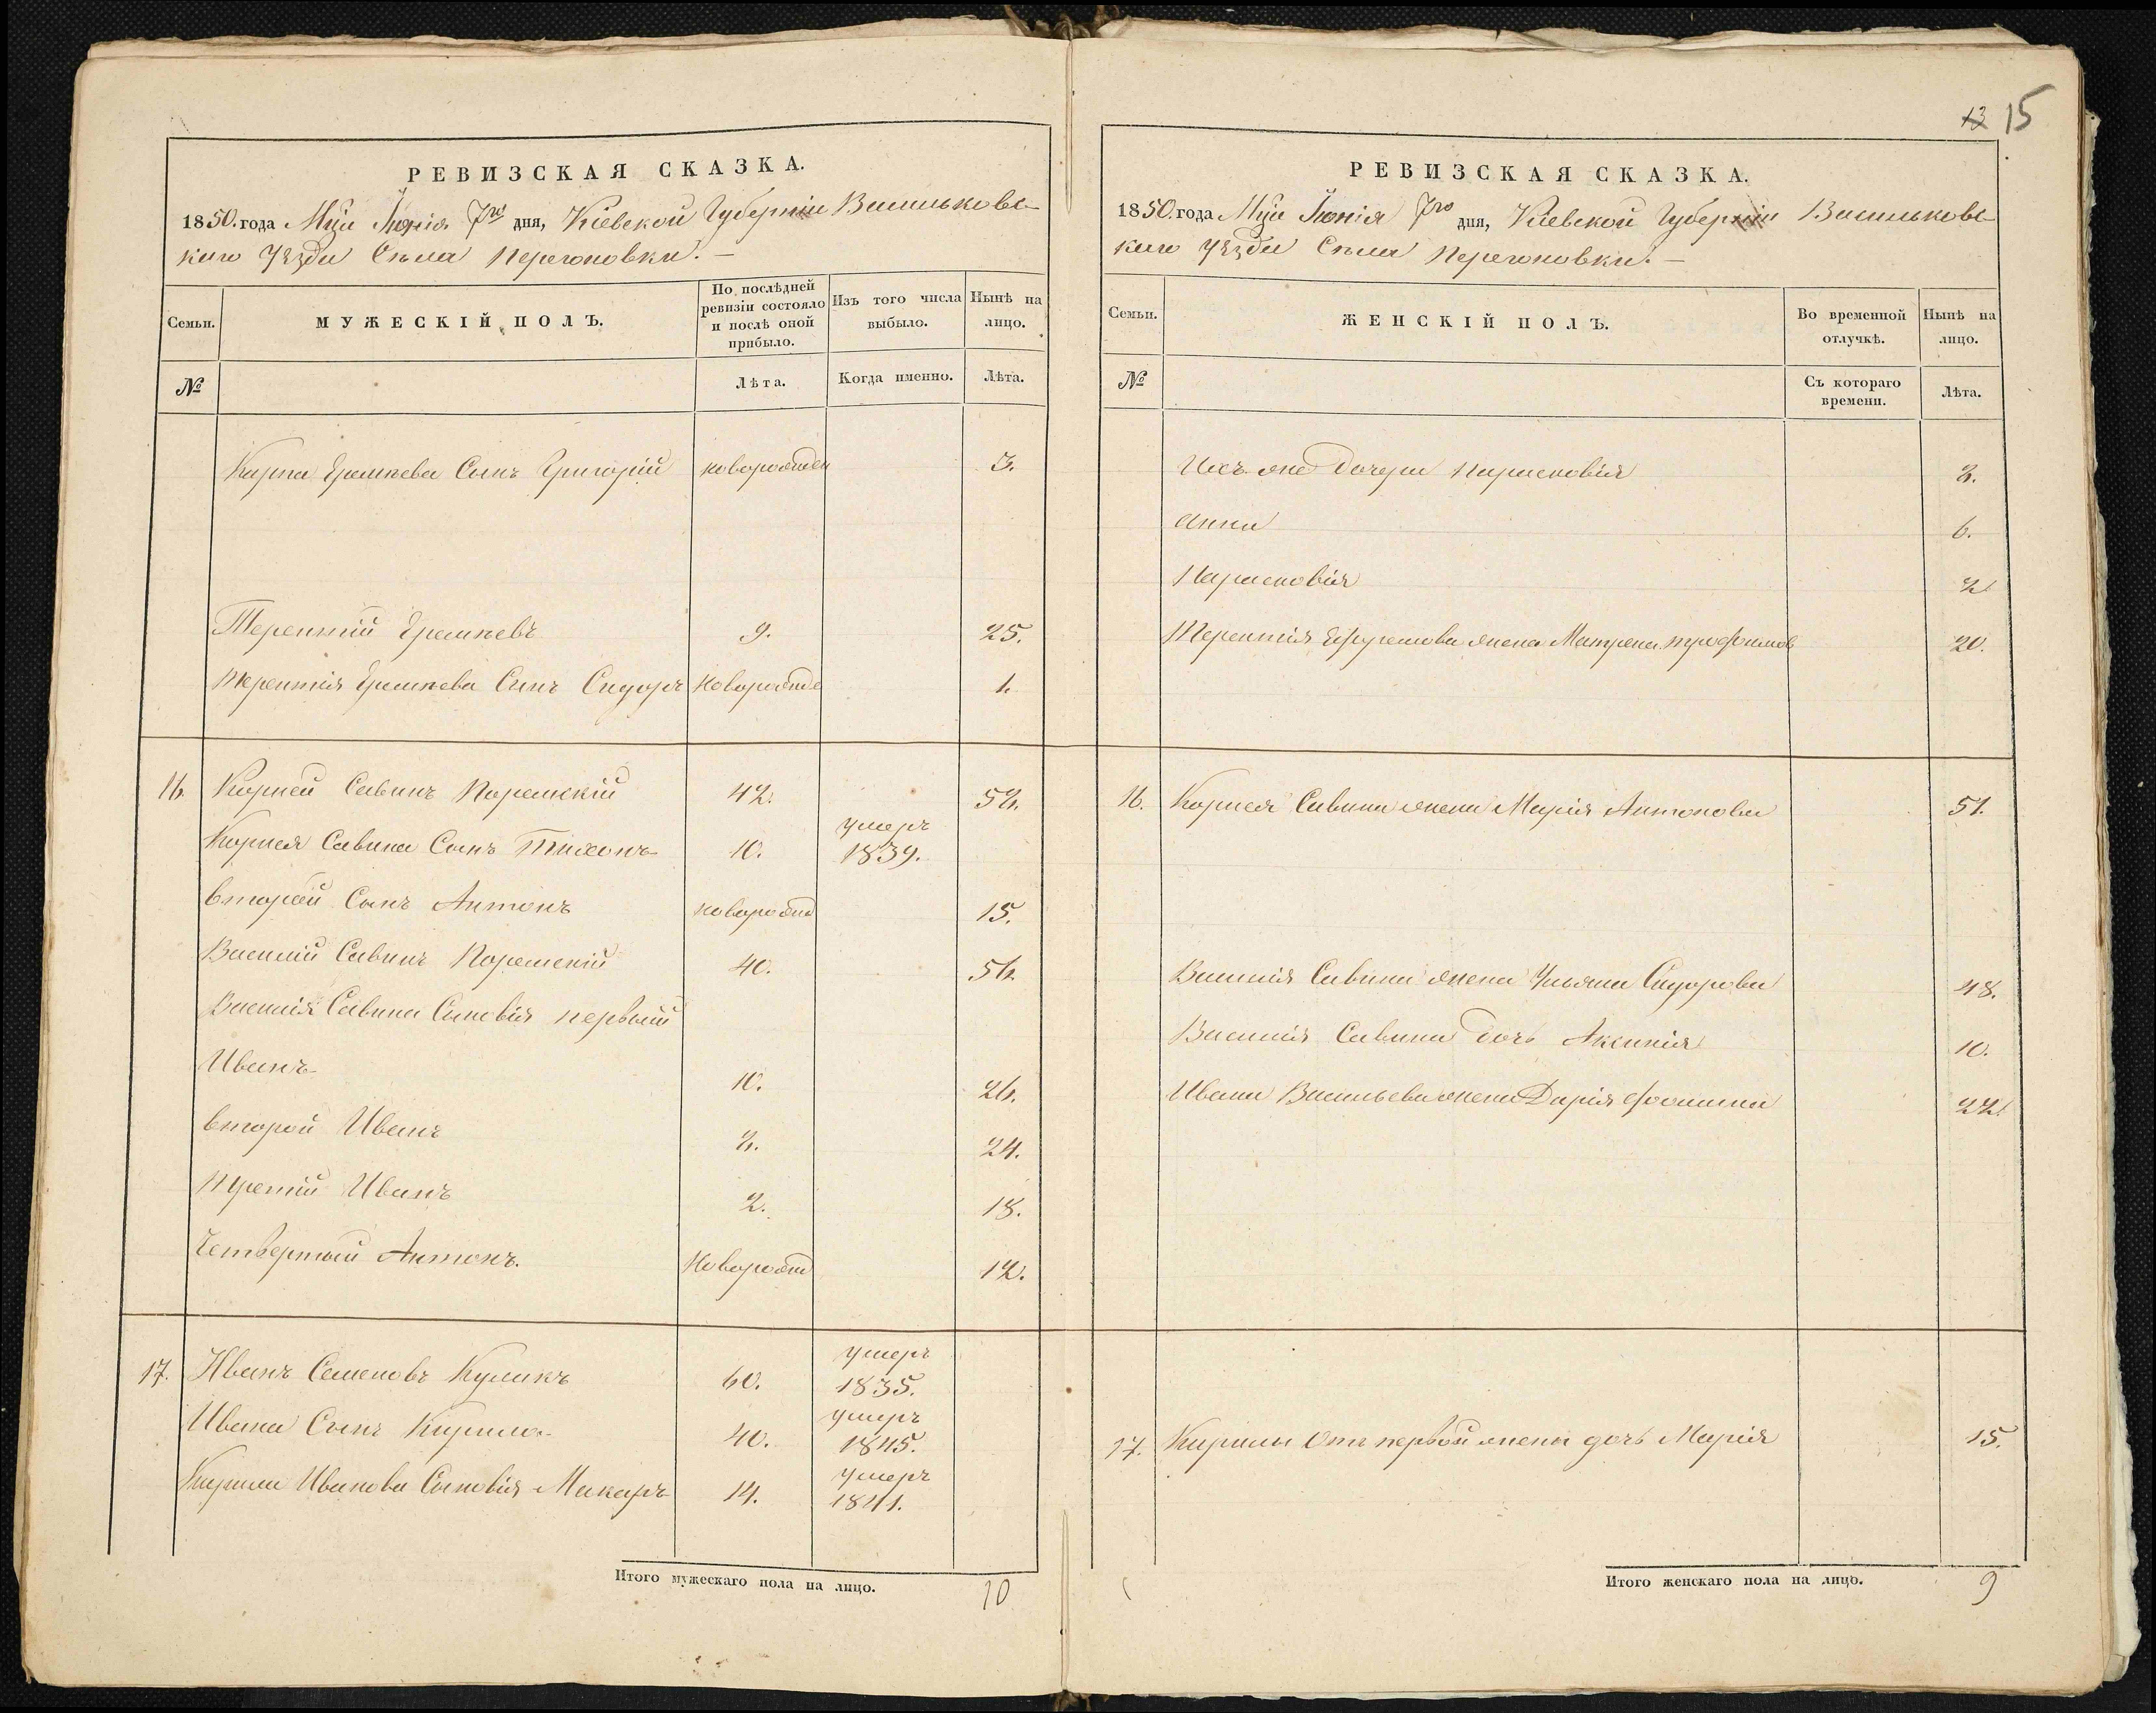 13 15
РЕВИЗСКАЯ СКАЗКА.
1850. года Мца Іюнія 7го дня, Кіевской Губерніи Васильковс-
каго Уѣзда Села Перегоновки. —
Семьи.
МУЖЕСКІЙ ПОЛЪ.
По послѣдней ревизіи состояло и послѣ оной прибыло.
Изъ того числа выбыло.
Нынѣ на лицо.
№
Лѣта.
Когда именно.
Лѣта.
Карпа Сынъ Григорій новорожден 3.
Терентій 9. 25.
Терентія Сынъ Сидоръ Новорожде 1.
16. Корней Савинъ 42. 58.
Корнея Савина Сынъ Тихонъ 10. умеръ 1839.
второй Сынъ Антонъ новорожд 15.
Василий Савинъ 40. 56.
Василія Савина Сыновія первый
Иванъ 10. 26.
второй Иванъ 8. 24.
третій Иванъ 2. 18.
Четвертый Антонъ. Новорожд 12.
17. Иванъ Семеновъ Куликъ 60. умеръ 1835.
Ивана Сынъ Кирило 40. умеръ 1845.
Кирила Иванова Сыновія Макаръ 14. умеръ 1841.
Итого мужескаго пола на лицо. 10
РЕВИЗСКАЯ СКАЗКА.
1850. года Мца Іюнія 7го дня, Кіевской Губерніи Васильковс-
каго Уѣзда Села Перегоновки. —
Семьи.
ЖЕНСКІЙ ПОЛЪ.
Во временной отлучкѣ.
Нынѣ на лицо.
№
Съ котораго времени.
Лѣта.
Ихъ же дочери Парасковія 8.
Анна 6.
Парасковія 2
Терентія жена Матрена Трофимов 20.
16. Корнея Савина жена Марія Антонова 51.
Василія Савина жена Ульяна Сидорова 48.
Василія Савина дочь Аксинія 10.
Ивана Васильева жена Дарія 22
17. Кирилы отъ первой жены дочь Марія 15.
Итого женскаго пола на лицо. 9